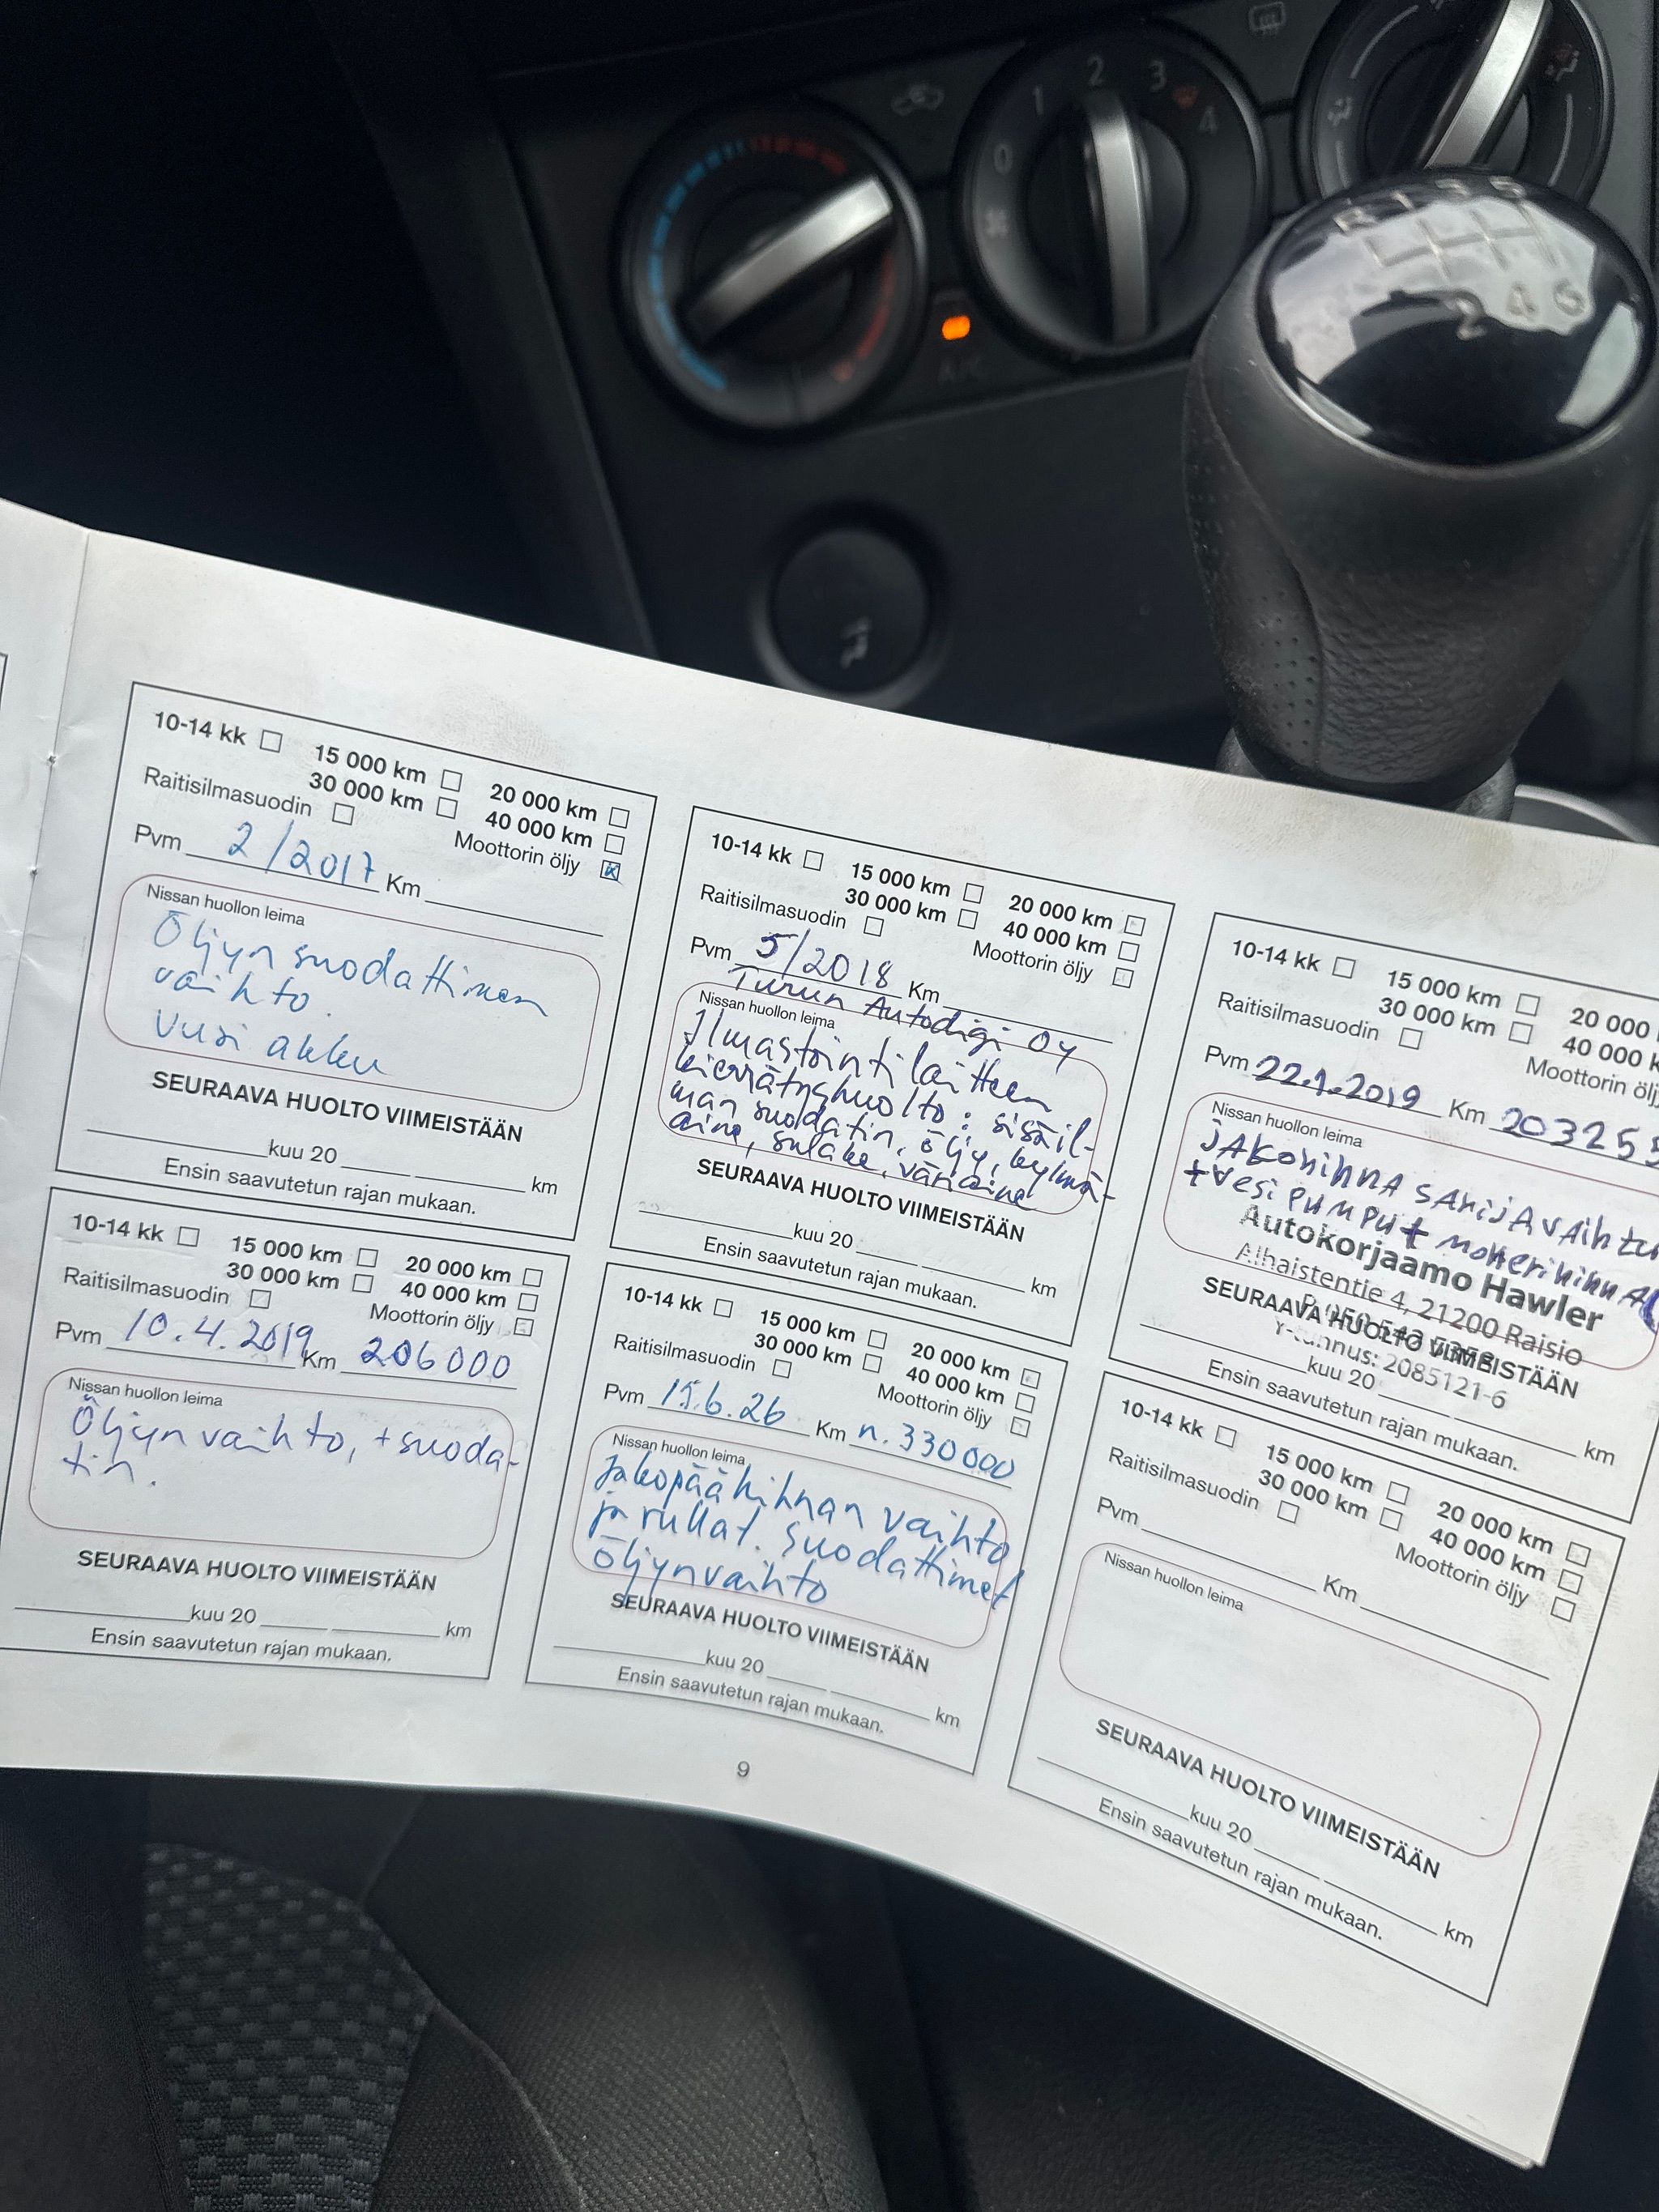 0
1
2
3
4
A/C
R 1 3 5
2 4 6
10-14 kk
15 000 km
20 000 km
30 000 km
40 000 km
Raitisilmasuodin
Moottorin öljy
Pvm 2/2017 Km
Nissan huollon leima
Öljyn suodattimen
vaihto.
Uusi akku
SEURAAVA HUOLTO VIIMEISTÄÄN
kuu 20 km
Ensin saavutetun rajan mukaan.
10-14 kk
15 000 km
20 000 km
30 000 km
40 000 km
Raitisilmasuodin
Moottorin öljy
Pvm 5/2018 Km
Turun Autodigi OY
Nissan huollon leima
Ilmastointilaitteen
kierrätyshuolto: sisäil-
man suodatin, öljy, kylmä-
aine, sulake, väriaine
SEURAAVA HUOLTO VIIMEISTÄÄN
kuu 20 km
Ensin saavutetun rajan mukaan.
10-14 kk
15 000 km
20 000
30 000 km
40 000 k
Raitisilmasuodin
Moottorin ölj
Pvm 22.1.2019 Km 203255
Nissan huollon leima
JAKOhihnA SARjA VAihto
+vesi PUMPU+ moнerihihnA
Autokorjaamo Hawler
Alhaistentie 4, 21200 Raisio
Y-tunnus: 2085121-6
SEURAAVA HUOLTO VIIMEISTÄÄN
kuu 20 km
Ensin saavutetun rajan mukaan.
10-14 kk
15 000 km
20 000 km
30 000 km
40 000 km
Raitisilmasuodin
Moottorin öljy
Pvm 10.4.2019 Km 206000
Nissan huollon leima
Öljyn vaihto, + suoda-
tin.
SEURAAVA HUOLTO VIIMEISTÄÄN
kuu 20 km
Ensin saavutetun rajan mukaan.
10-14 kk
15 000 km
20 000 km
30 000 km
40 000 km
Raitisilmasuodin
Moottorin öljy
Pvm 15.6.26 Km n. 330000
Nissan huollon leima
Jakopäähihnan vaihto
ja rullat. Suodattimet
öljynvaihto
SEURAAVA HUOLTO VIIMEISTÄÄN
kuu 20 km
Ensin saavutetun rajan mukaan.
10-14 kk
15 000 km
20 000 km
30 000 km
40 000 km
Raitisilmasuodin
Moottorin öljy
Pvm Km
Nissan huollon leima
SEURAAVA HUOLTO VIIMEISTÄÄN
kuu 20 km
Ensin saavutetun rajan mukaan.
9